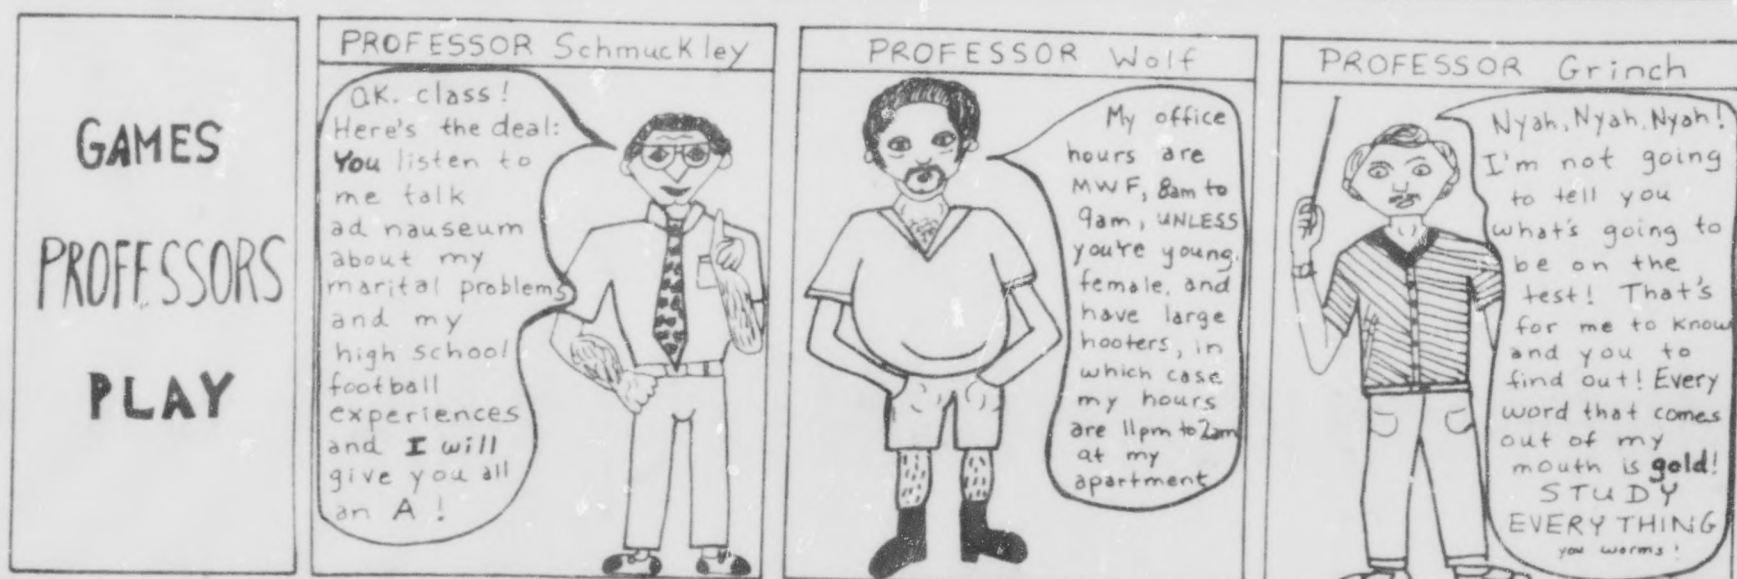 GAMES
PROFESSORS
PLAY
PROFESSOR Schmuckley
OK. class!
Here's the deal:
You listen to
me talk
ad nauseum
about my
marital problems
and my
high school
football
experiences
and I will
give you all
an A!
PROFESSOR Wolf
My office
hours are
MWF, 8am to
9am, UNLESS
you're young,
female, and
have large
hooters, in
which case
my hours
are 11pm to 2am
at my
apartment
PROFESSOR Grinch
Nyah, Nyah, Nyah!
I'm not going
to tell you
what's going to
be on the
test! That's
for me to know
and you to
find out! Every
word that comes
out of my
mouth is gold!
STUDY
EVERYTHING
you worms!